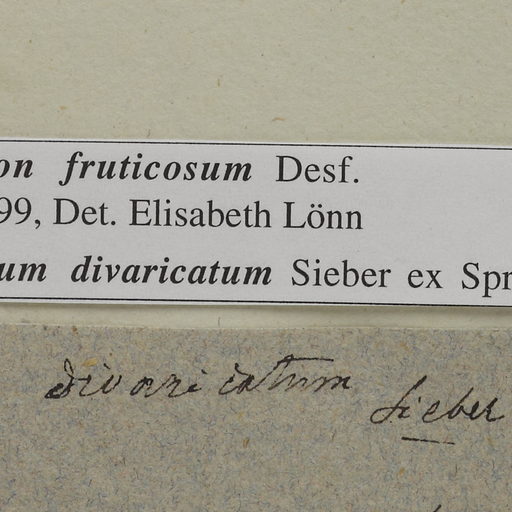 on fruticosum Desf.
99, Det. Elisabeth Lönn
um divaricatum Sieber ex Spr
divaricatum Sieber